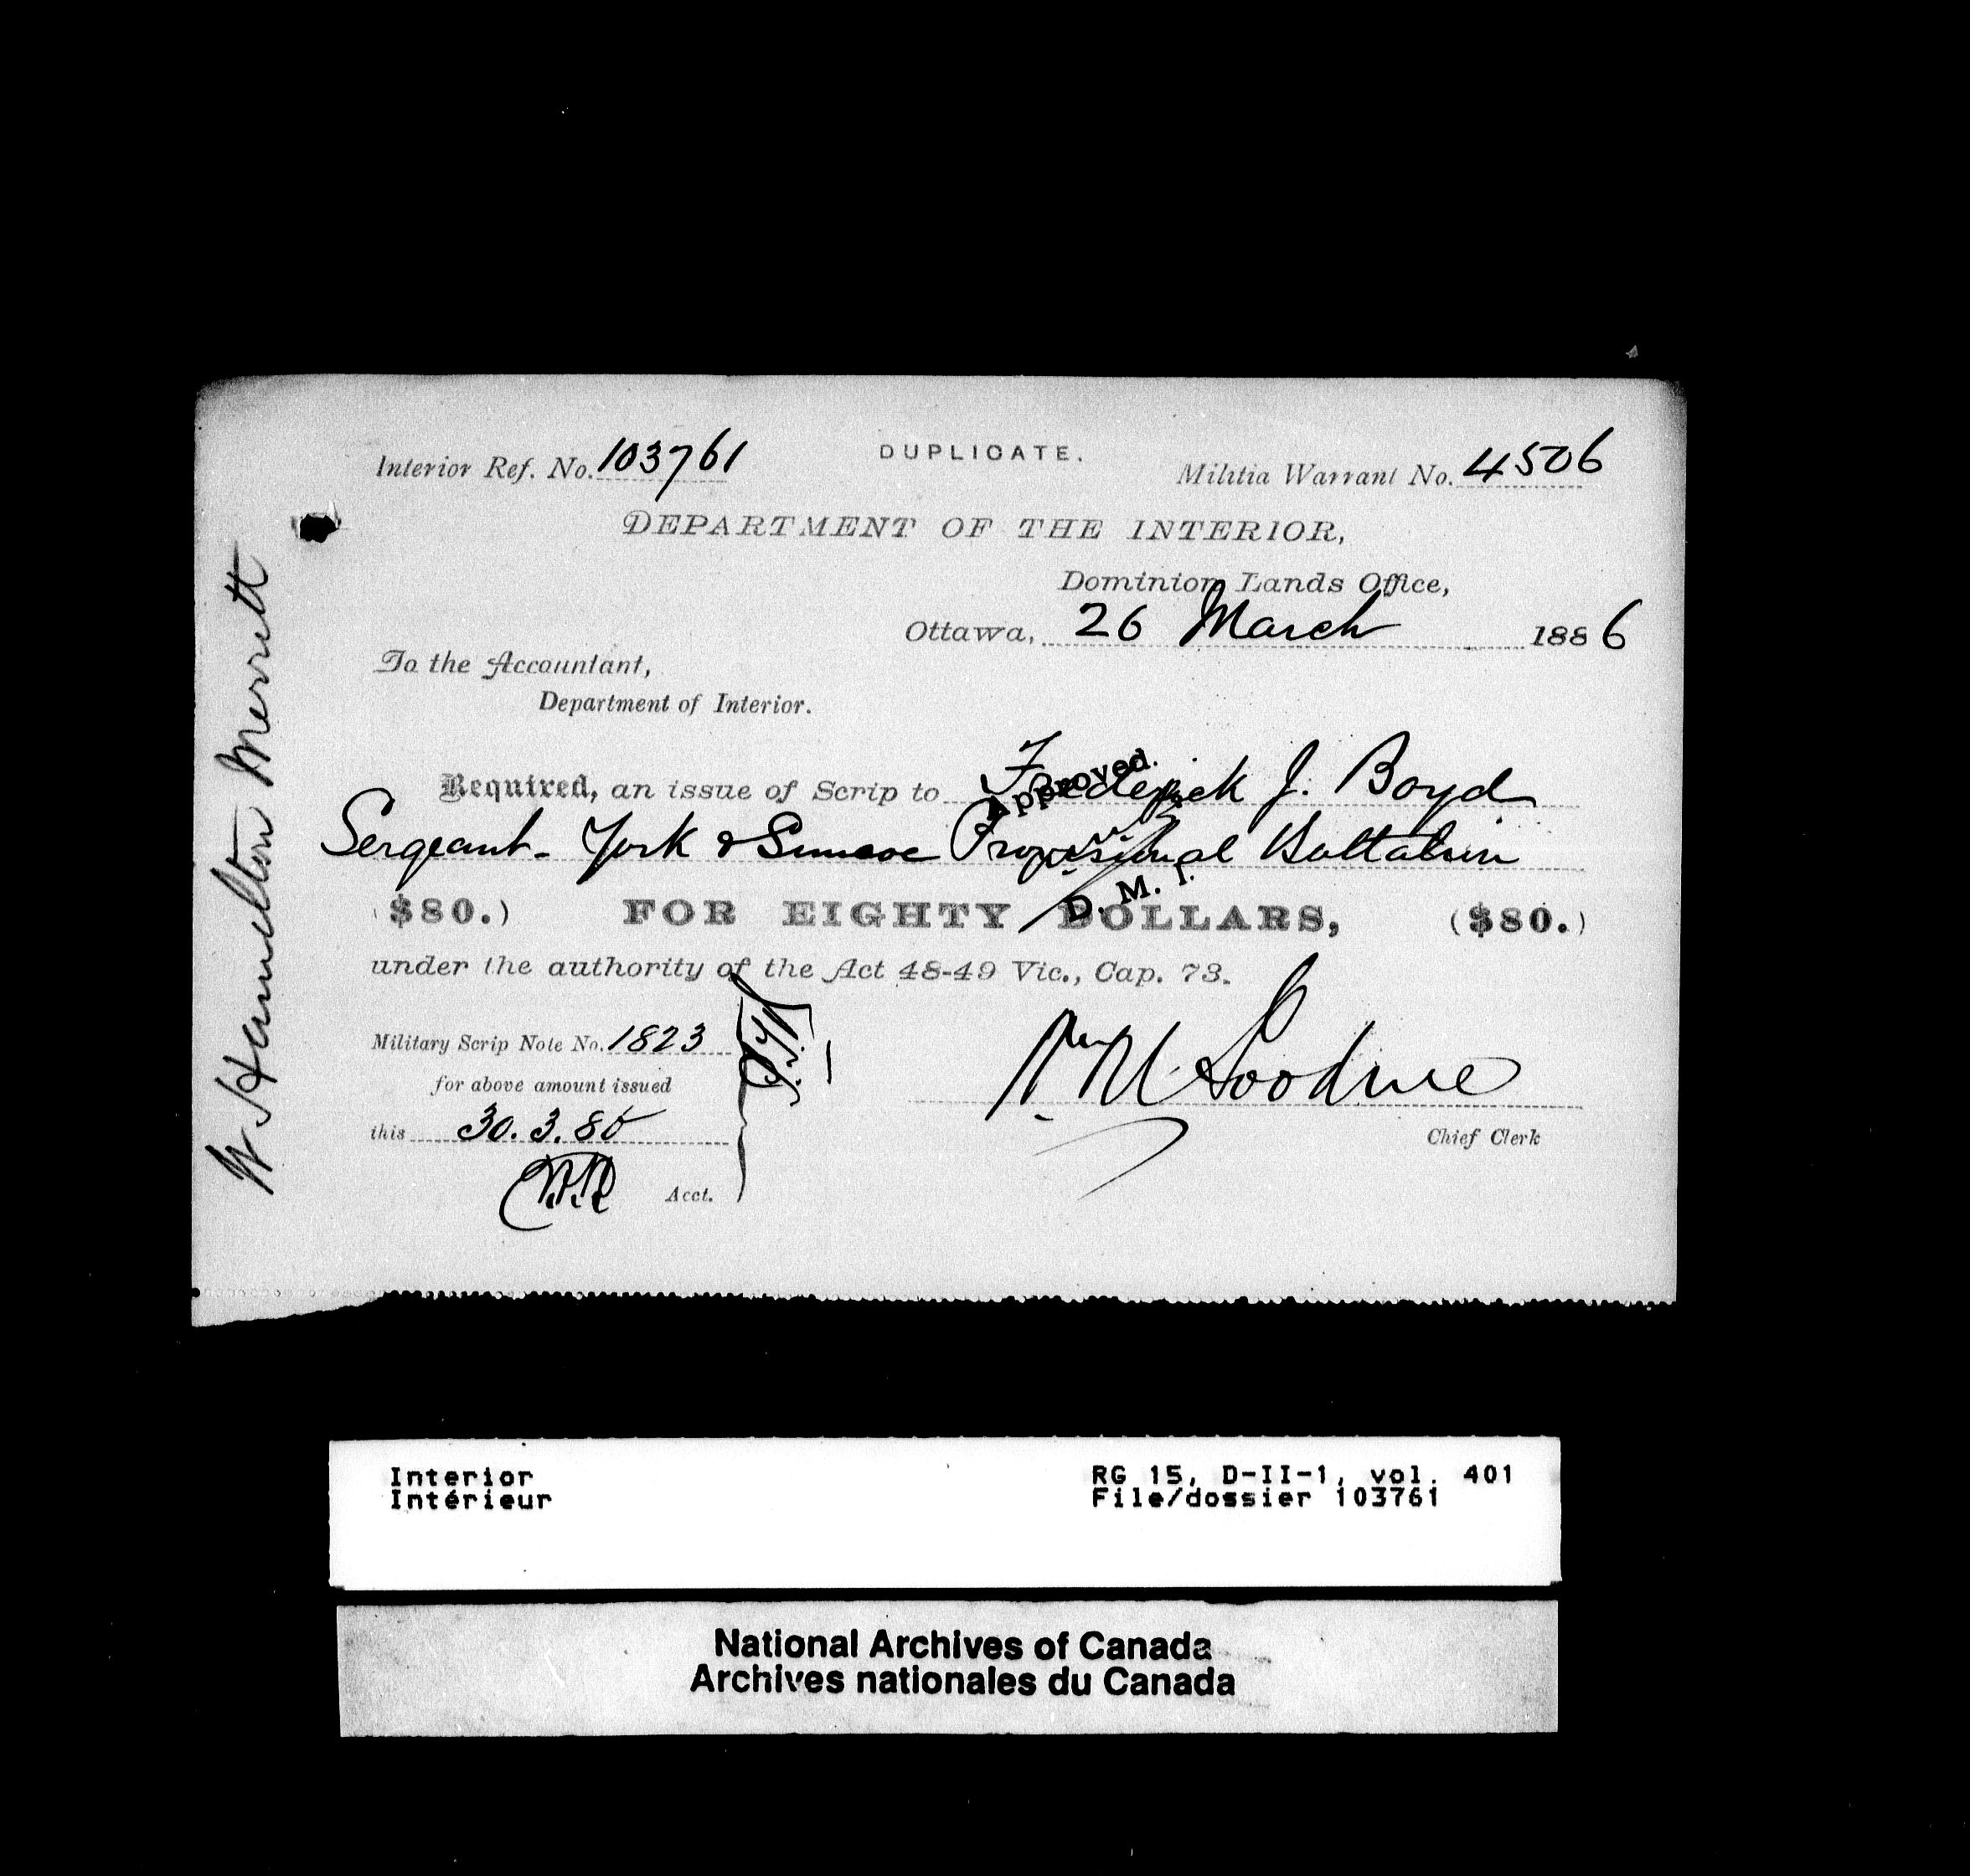 Interior Ref. No. 103761
DUPLICATE.
Militia Warrant No. 4506
DEPARTMENT OF THE INTERIOR,
Dominion Lands Office,
Ottawa, 26 March 1886
To the Accountant,
Department of Interior.
Required, an issue of Scrip to Frederick J. Boyd
Approved.
Sergeant - York & Simcoe Provisional Battalion
D. M. I.
($80.) FOR EIGHTY DOLLARS, ($80.)
under the authority of the Act 48-49 Vic., Cap. 73.
Military Scrip Note No. 1823
for above amount issued
this 30. 3. 86
Acct.
Chief Clerk
W Hamilton Merritt
Interior
Intérieur
RG 15, D-II-1, vol. 401
File/dossier 103761
National Archives of Canada
Archives nationales du Canada